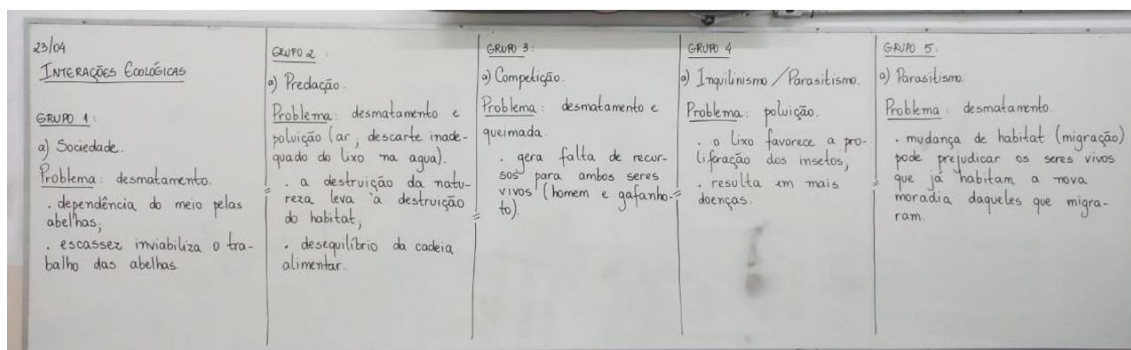 23/04
INTERAÇÕES ECOLÓGICAS
GRUPO 1:
a) Sociedade.
Problema: desmatamento.
. dependência do meio pelas
abelhas;
. escassez inviabiliza o tra-
balho das abelhas.
GRUPO 2:
a) Predação.
Problema: desmatamento e
poluição (ar, descarte inade-
quado do lixo na agua).
. a destruição da natu-
reza leva à destruição
do habitat;
. desequilíbrio da cadeia
alimentar.
GRUPO 3:
a) Competição.
Problema: desmatamento e
queimada.
. gera falta de recur-
sos para ambos seres
vivos (homem e gafanho-
to).
GRUPO 4
a) Inquilinismo / Parasitismo.
Problema: poluição.
. o lixo favorece a pro-
liferação dos insetos,
. resulta em mais
doenças.
GRUPO 5:
a) Parasitismo.
Problema: desmatamento.
. mudança de habitat (migração)
pode prejudicar os seres vivos
que já habitam a nova
moradia daqueles que migra-
ram.